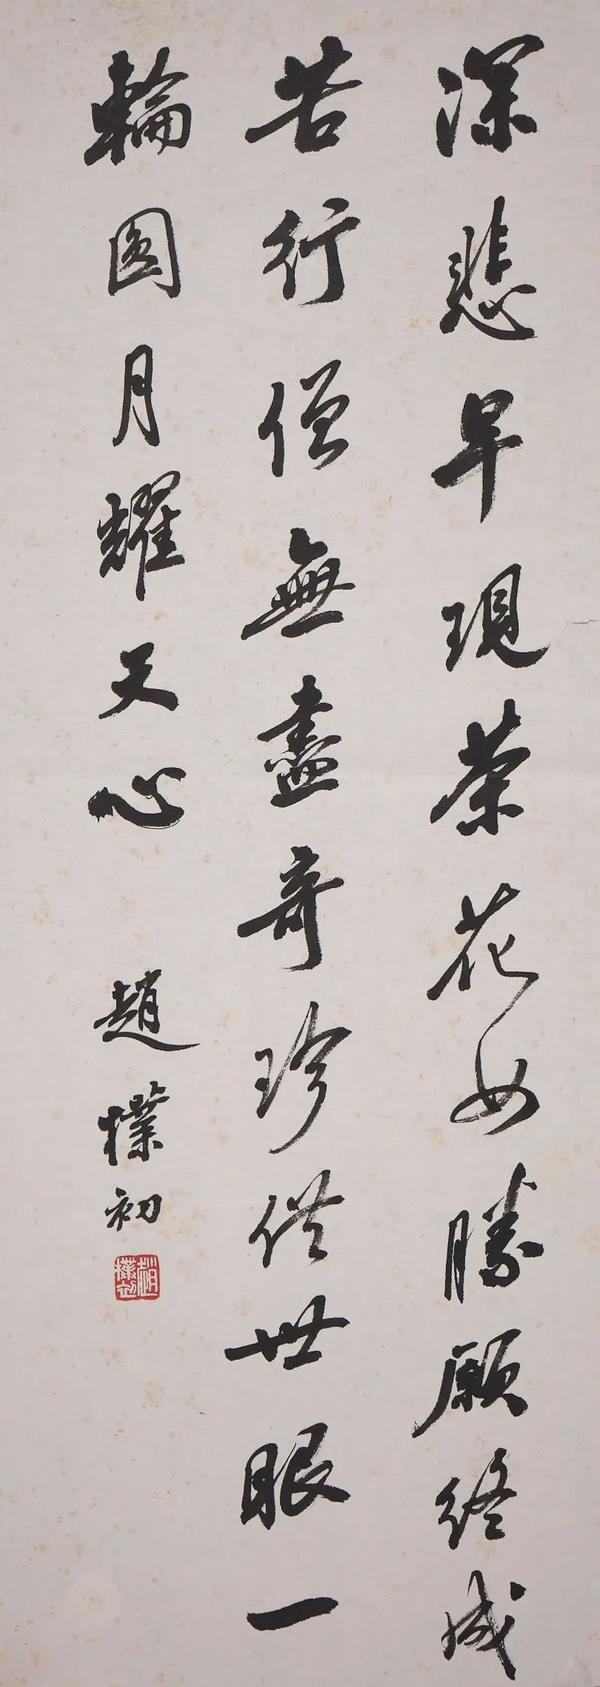 深悲早現茶花女勝願終成
苦行僧無盡奇珍供世眼一
輪圆月耀天心
趙樸初
趙樸初